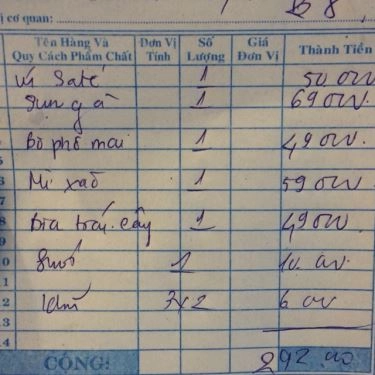 ị cơ quan:
Tên Hàng Và Quy Cách Phẩm Chất Đơn Vị Tính Số Lượng Giá Đơn Vị Thành Tiền
Saté 1 50
gà 1 69
Bò phô mai 1 49
Mì xào 1 59
Dĩa trái cây 1 49
Suối 1 10
Khăn 3x2 6
CỘNG: 292.00